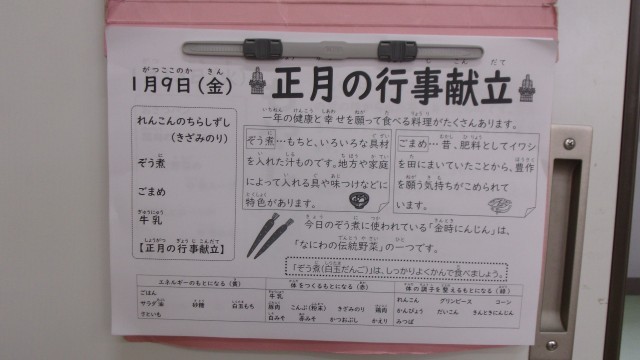 1月9日(金) 正月の行事献立
一年の健康と幸せを願って食べる料理がたくさんあります。
れんこんのちらしずし
(きざみのり)
ぞう煮
ごまめ
牛乳
【正月の行事献立】
ぞう煮…もちと、いろいろな具材
を入れた汁ものです。地方や家庭
によって入れる具や味つけなどに
特色があります。
ごまめ…昔、肥料としてイワシ
を田にまいていたことから、豊作
を願う気持ちがこめられて
います。
今日のぞう煮に使われている「金時にんじん」は、
「なにわの伝統野菜」の一つです。
「ぞう煮(白玉だんご)」は、しっかりよくかんで食べましょう。
エネルギーのもとになる(黄) 体をつくるもとになる(赤) 体の調子を整えるもとになる(緑)
ごはん 牛乳 れんこん グリンピース コーン
サラダ油 砂糖 白玉もち 豚肉 こんぶ(粉末) きざみのり 鶏肉 かんぴょう だいこん きんときにんじん
さといも 白みそ 赤みそ かつおぶし かえり みつば